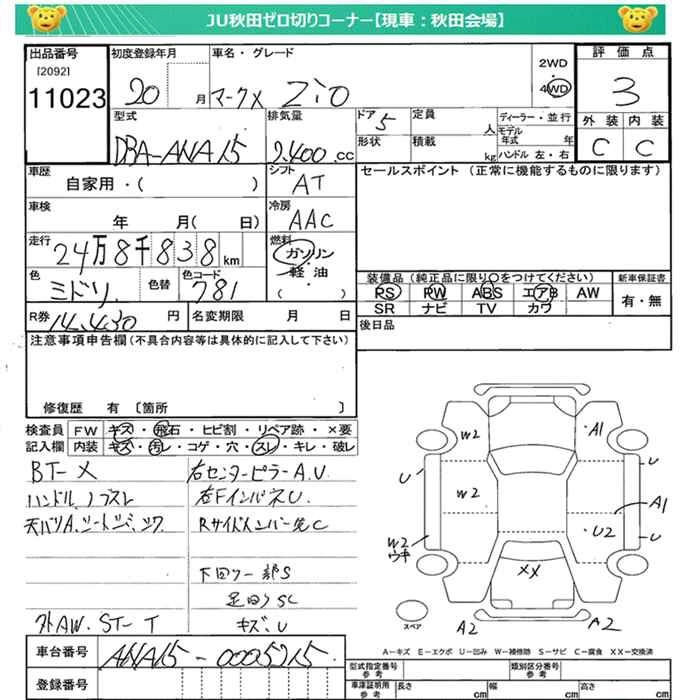 JU秋田ゼロ切りコーナー【現車：秋田会場】
出品番号
[2092]
11023
初度登録年月
20 月
車名・グレード
マークX ZiO
2WD
4WD
評価点
3
外装 内装
C C
型式
DBA-ANA15
排気量
2.400 cc
ドア 5
形状
定員 人
積載 kg
ディーラー・並行
モデル年式 年
ハンドル 左・右
車歴
自家用・( )
シフト
AT
セールスポイント (正常に機能するものに限ります)
車検
年 月( 日)
冷房
AAC
走行
24万8千838km
燃料
ガソリン・軽油・( )
色
ミドリ
色替
色コード
781
装備品(純正品に限り○をつけてください)
PS PW ABS エアB AW
SR ナビ TV カワ
新車保証書
有・無
R券 14,430 円
名変期限 月 日
後日品
注意事項申告欄(不具合内容等は具体的に記入して下さい)
修復歴 有 〔箇所 〕
検査員記入欄
FW キズ・飛石・ヒビ割・リペア跡・×要
内装 キズ・汚レ・コゲ・穴・スレ・キレ・破レ
BT-X
右センターピラーA.U
ハンドル,ノブスレ
右FインパネU.
天バリA.シートシミ,コゲ
Rサイドメンバー先C
下回り一部S
足回りSC
外AW.ST-T
キズ、U
W2
A1
U
U
W2
A1
W2
ウキ
U2
U
XX
スペア
A2
A2
A-キズ E-エクボ U-凹み W-補修跡 S-サビ C-腐食 XX-交換済
車台番号
ANA15-0005715
登録番号
型式指定番号 参考
類別区分番号 参考
車庫証明用 参考
長さ cm
幅 cm
高さ cm